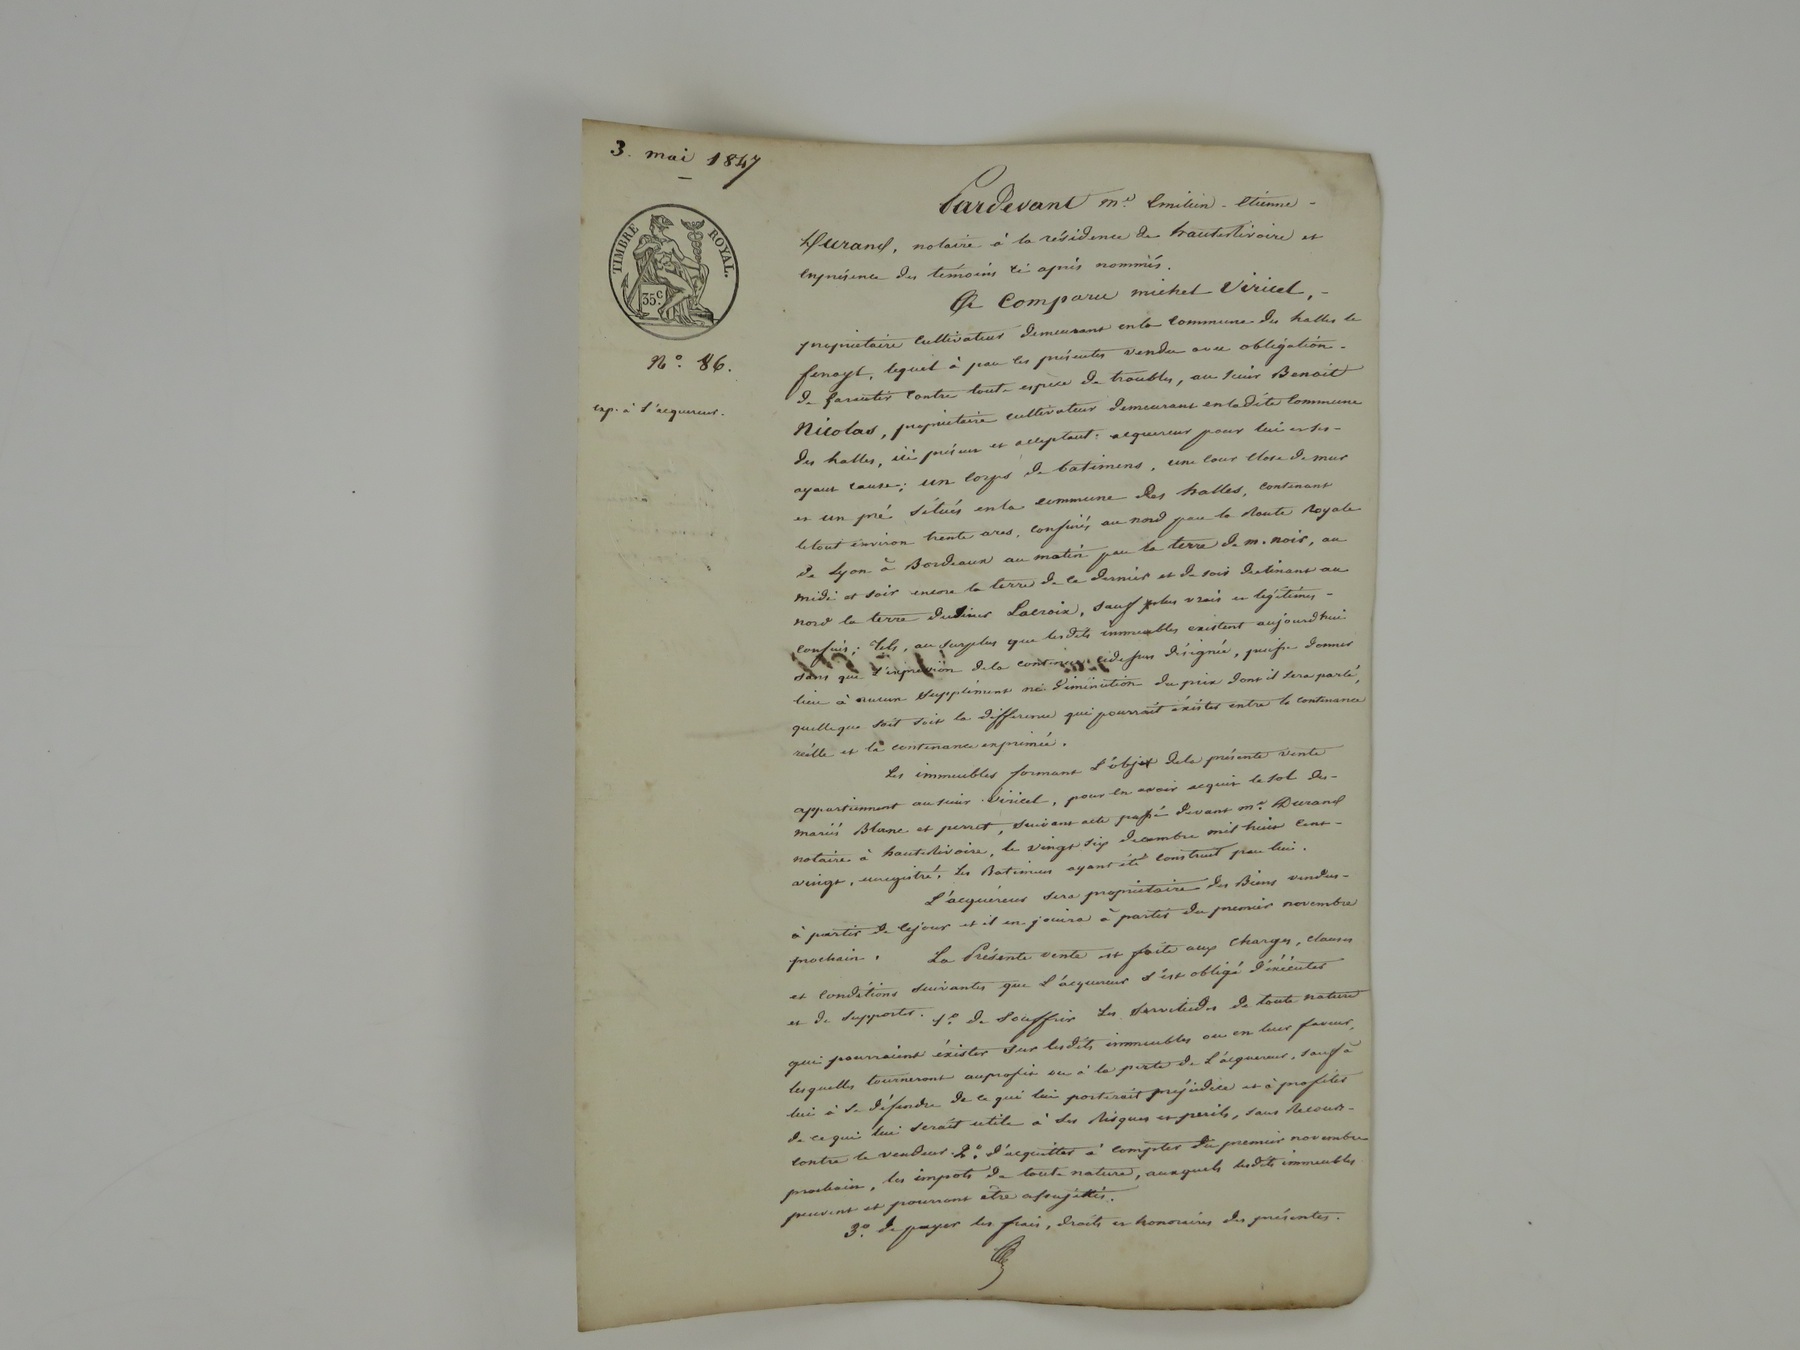 3. mai 1847
TIMBRE ROYAL.
35 c.
N° 86.
exp. à l'acquereur.
Pardevant Me Emilien - Etienne -
Durand, notaire à la résidence de hauterivoire et
enprésence des témoins ci après nommés.
A Comparu michel Viricel, -
propriétaire cultivateur demeurant enla commune des halles le
fenoyl, lequel à par les présentes vendu avec obligation -
de garentir contre toute espèce de troubles, au sieur Benoit
Nicolas, propriétaire cultivateur demeurant enladite commune
des halles, ici présent et acceptant: acquereur pour lui et ses -
ayant cause; un corps de batimens, une cour close de mur
et un pré situés enla commune des halles, contenant
letout environ trente ares, confinés au nord par la Route Royale
de Lyon à Bordeaux au matin par la terre de m. noir, au
midi et soir encore la terre de ce dernier et de soir declinant au
nord la terre dusieur Lacroix, sauf plus vrais et légitimes -
confins; tels, au surplus que lesdits immeubles existent aujourdhui
sans que l'expression dela contenance cidessus désignée, puisse donner
lieu à aucun supplément ni diminution du prix dont il sera parlé,
quelleque soit soit la difference qui pourrait éxister entre la contenance
réelle et la contenance exprimée.
Les immeubles formant l'objet dela présente vente
appartiennent ausieur Viricel, pour en avoir acquis le sol des -
mariés Blanc et perret, suivant acte passé devant me Durand
notaire à hauterivoire, le vingt six decembre mil huit cent -
vingt, enregistré. Les Batimens ayant été construit par lui.
L'acquéreur sera propriétaire des Biens vendus -
à partir de cejour et il en jouira à partir du premier novembre
prochain. La Présente vente est faite aux charges, clauses
et conditions suivantes que l'acquereur s'est obligé d'éxécuter
et de supporter. 1° de souffrir les servitudes de toute nature
qui pourraient éxister sur lesdits immeubles ou en leur faveur,
lesquelles tourneront auprofit ou à la perte de l'acquereur, sauf à
lui à se défendre de ce qui lui porterait préjudice et à profiter
de ce qui lui serait utile à ses Risques et perils, sans Recours -
contre le vendeur. 2° d'acquitter à compter du premier novembre
prochain, les impots de toute nature, auxquels lesdits immeubles
peuvent et pourront être assujettis.
3° de payer les frais, droits et honoraires des présentes.